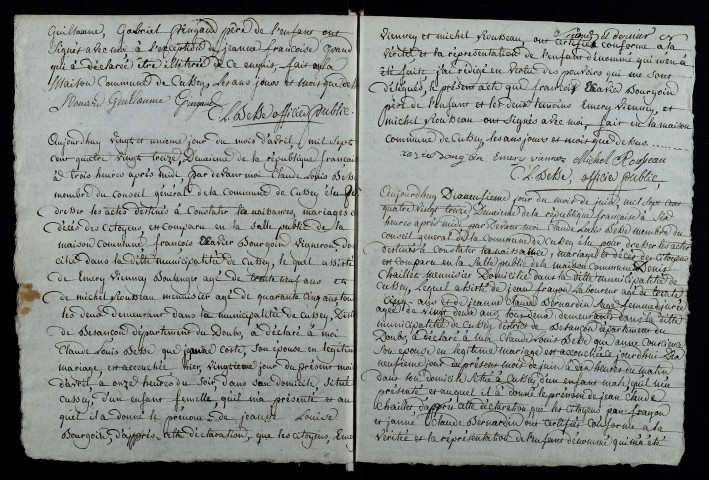 Guillaume, Gabriel Pingaud père de l'enfant ont
Signés avec moi à l'exception de jeanne françoise
qui a déclaré être illiterée de ce enquis, fait en la
Maison Commune de Cussey, Les ans jours et mois que de
Guillaume
C L Besse officier public.
Aujourdhuy vingt et unieme jour du mois d'avril, mil sept
cent quatre vingt treize, Deuxieme de la république francaise
à trois heures après midi, par devant moi Claude Louis Besse
membre du Conseil général de la Commune de Cussey élu pr
dresser les actes destinés à Constater les naissances, mariages et
décès des Citoyens est comparu en la salle public de la
maison Commune françois Xavier Bourgoin Vigneron, do
cilié dans la ditte municipalité de Cussey, le quel assisté
de Emery Vienney Boulenger agé de trente neuf ans et
de michel Rousseau menuisier agé de quarante Cinq ans tous
les deux demeurant dans la municipalité de Cussey, Distr
de Besançon département du Doubs, a déclaré à moi
Claude Louis Besse que jeanne Coste, son épouse en legitime
mariage est accouchée hier, vingtieme jour du present mois
d'avril, à onze heures du Soir dans son domicile, Situé
Cussey, d'un enfant femelle qu'il m'a présenté et au
quel il a donné le prénom de jeanne Louise
Bourgoin, d'après cette déclaration, que les citoyens, Emery
Vienney et michel Rousseau, ont certifiée conforme à la
vérité et la représentation de l'enfant denommé qui m'en a
été faite, j'ai rédigé en vertus des pouvoirs qui me sont
délégués, le présent acte que francois Xavier Bourgoin
père de l'enfant et les deux temoins Emery Vienney, et
michel Rousseau ont signés avec moi, fait en la maison
commune de Cussey, les ans jours et mois que dessus
Emery vienney Michel Rousseau
C L Besse, officier public,
Aujourdhuy Dixneufieme jour du mois de juin, mil sept cent
quatre vingt treize Deuxieme de la république française à
heures après midi par devant moi Claude Louis Besse membre du
Conseil general de la Commune de Cussey élu pour dresser les actes
destinés à Constater les naissances, mariages et décès des citoyens
est comparu en la salle public de la maison Commune Denis
Chaillet menuisier Domicilié dans la ditte municipalité de
Cussey, Lequel assisté de jean frayon Laboureur agé de trente
Cinq ans et de jeanne Claude Bernardin Sage femme jurée
agée de vingt deux ans, tous deux demeurants dans la ditte
municipalité de Cussey district de Besançon département du
Doubs, a déclaré à moi Claude Louis Besse que anne
Son épouse en legitime mariage est accouchée jourdhui Dix
neufieme jour du présent mois de juin à dix heures du matin
dans son domicile Situé à Cussey, d'un enfant male, qu'il m'a
présenté et auquel il a donné le prénom de jean Claude
Chaillet, d'après cette déclaration que les citoyens jean frayon
et jeanne Claude Bernardin ont certifiée conforme à la
Vérité et la représentation de l'enfant dénommé qui m'a été